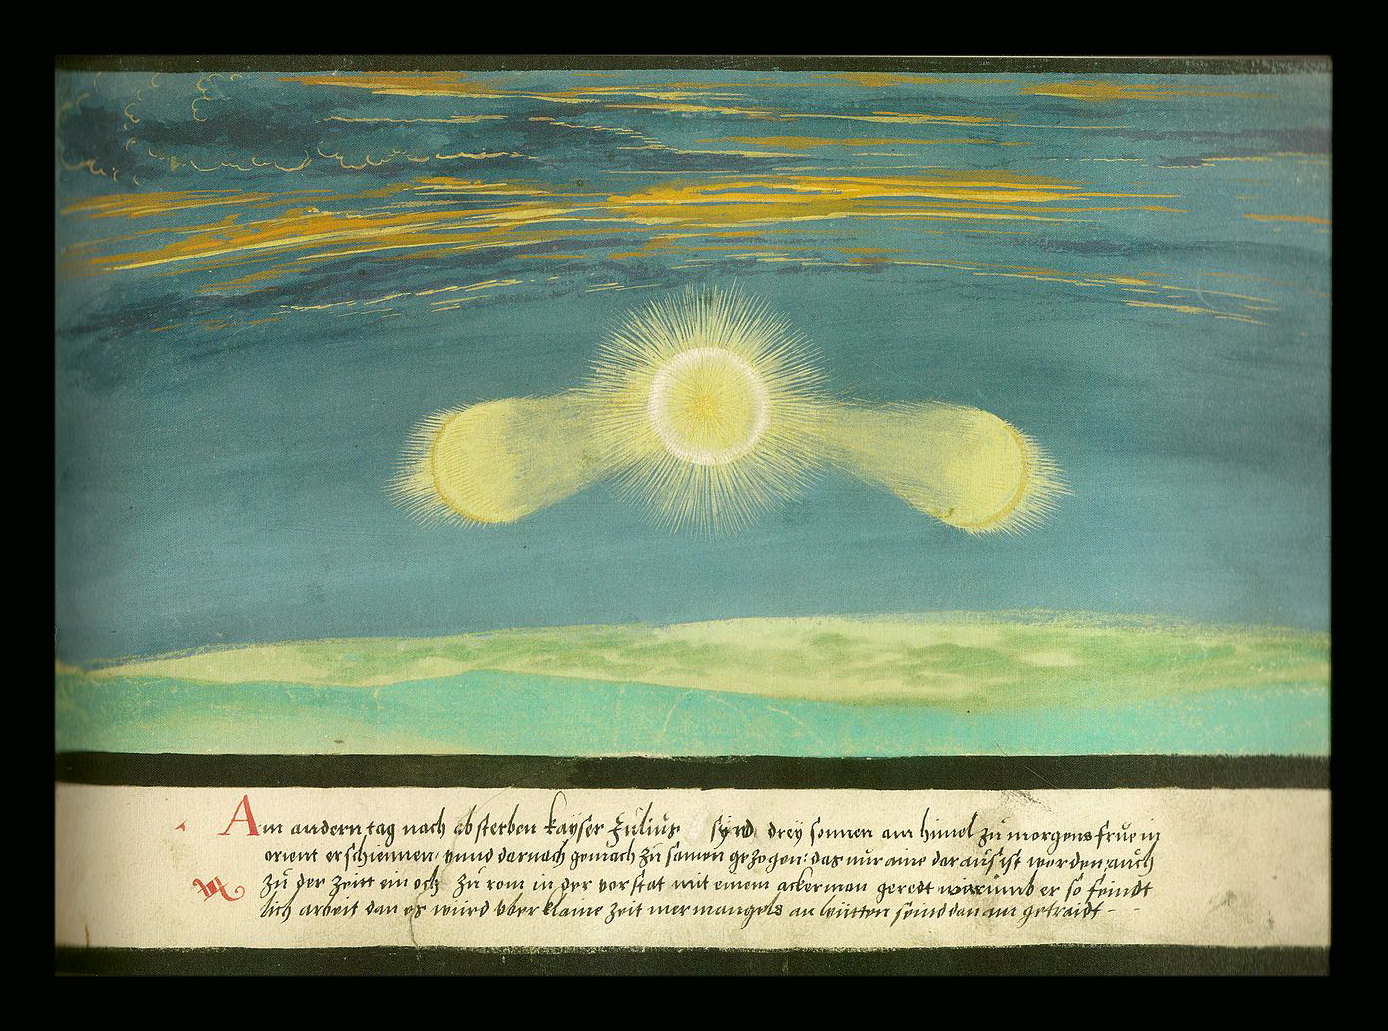 Am andern tag nach absterben kayser Julius synd drey sonnen am himel zu morgens frue in
orient erschiennen, vnnd darnach gemach zu samen gezogen: das nur aine daraus ist worden, auch
zu der zeitt ein ochs zu rom in der vorstat mit einem ackerman geredt warumb er so feindt
lich arbeit dan es wurd vber klaine zeit mer mangels an leütten seind dan am getraidt